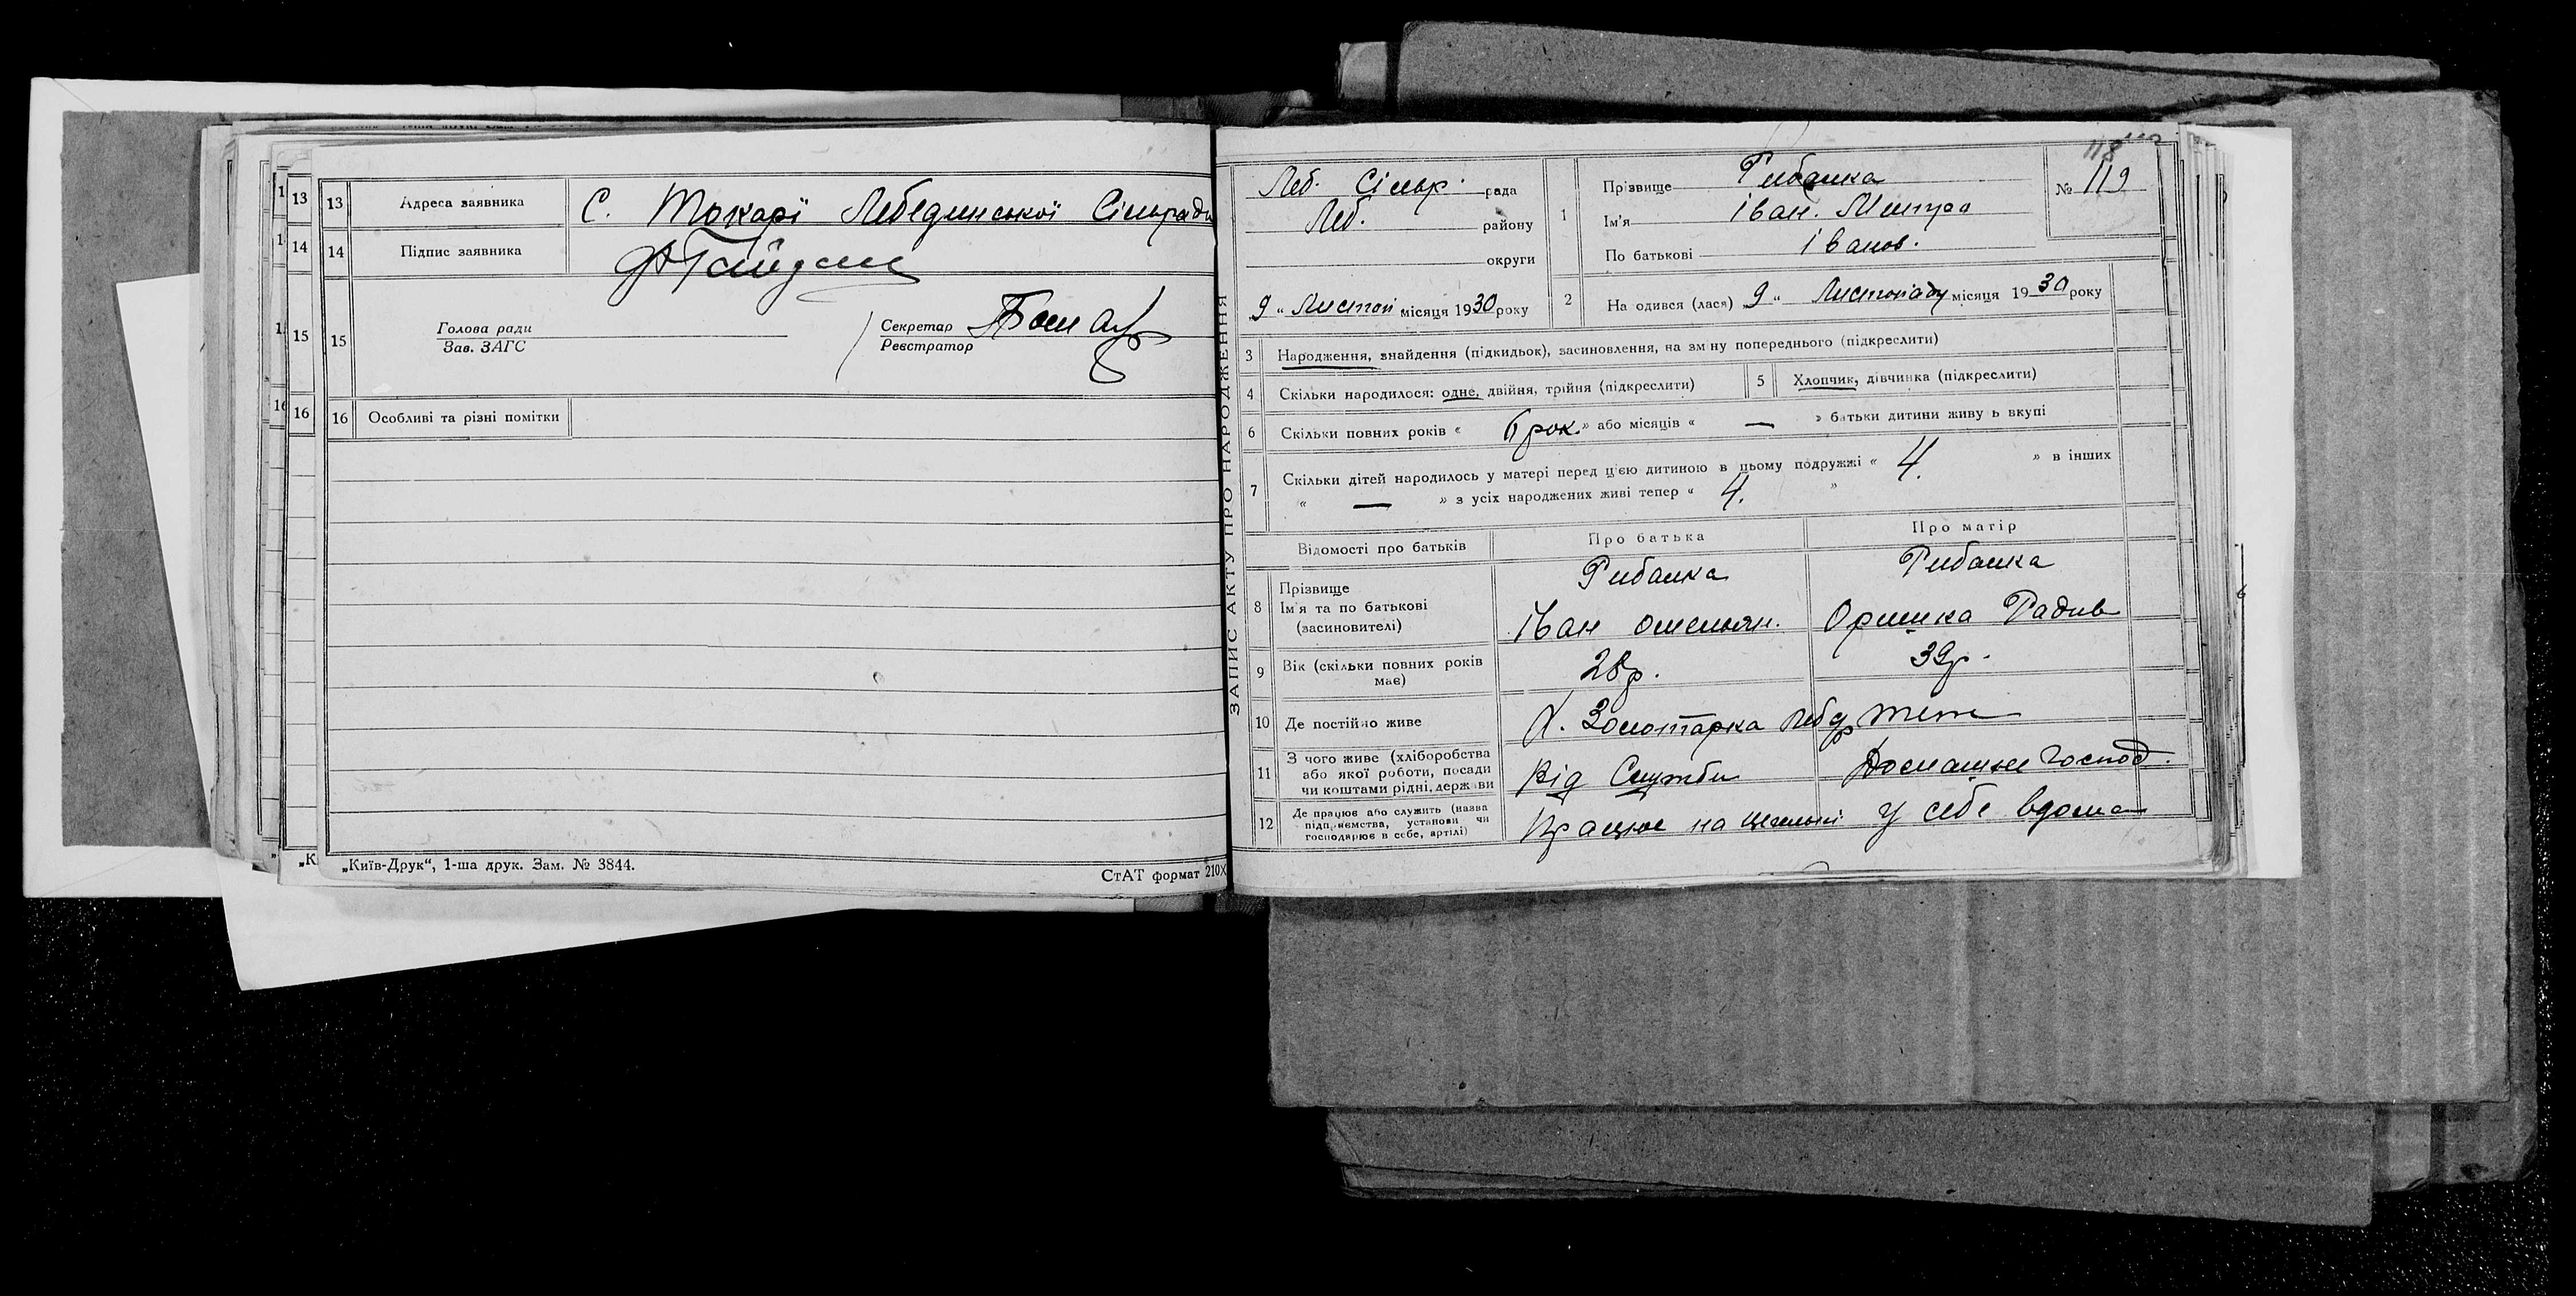 13 Адреса заявника С. Токарї Лебединської Сільради
14 Підпис заявника
15 Голова ради
Зав. ЗАГС
Секретар
Реєстратор
16 Особливі та різні помітки
„Київ-Друк“, 1-ша друк. Зам. № 3844.
СтАТ формат 210X
ЗАПИС АКТУ ПРО НАРОДЖЕННЯ
118
Леб. Сільр. рада
Леб. району
округи
9 „ Листоп місяця 1930 року
1 Прізвище Рибалка
Ім'я Іван.
По батькові Іванов.
№ 119
2 На одився (лася) 9 „ Листопаду місяця 1930 року
3 Народження, знайдення (підкидьок), засиновлення, на зм ну попереднього (підкреслити)
4 Скільки народилося: одне, двійня, трійня (підкреслити)
5 Хлопчик, дівчинка (підкреслити)
6 Скільки повних років „ 6 рок. " або місяців „ — " батьки дитини живу ь вкупі
7 Скільки дітей народилось у матері перед цією дитиною в цьому подружжі „ 4. " в інших
„ — " з усіх народжених живі тепер „ 4. "
Відомості про батьків Про батька Про матір
8 Прізвище Рибалка Рибалка
Ім'я та по батькові Іван Омельян. Оришка Радив
(засновителі)
9 Вік (скільки повних років має) 28р. 39р.
10 Де постійно живе Х. Золотарка Леб др теж
11 З чого живе (хліборобства
або якої роботи, посади
чи коштами рідні, держави
Від Служби Домашнє Господ.
12 Де працює або служить (назва
підприємства, установи чи
господарює в себе, артілі)
Працює на цегельні У себе вдома